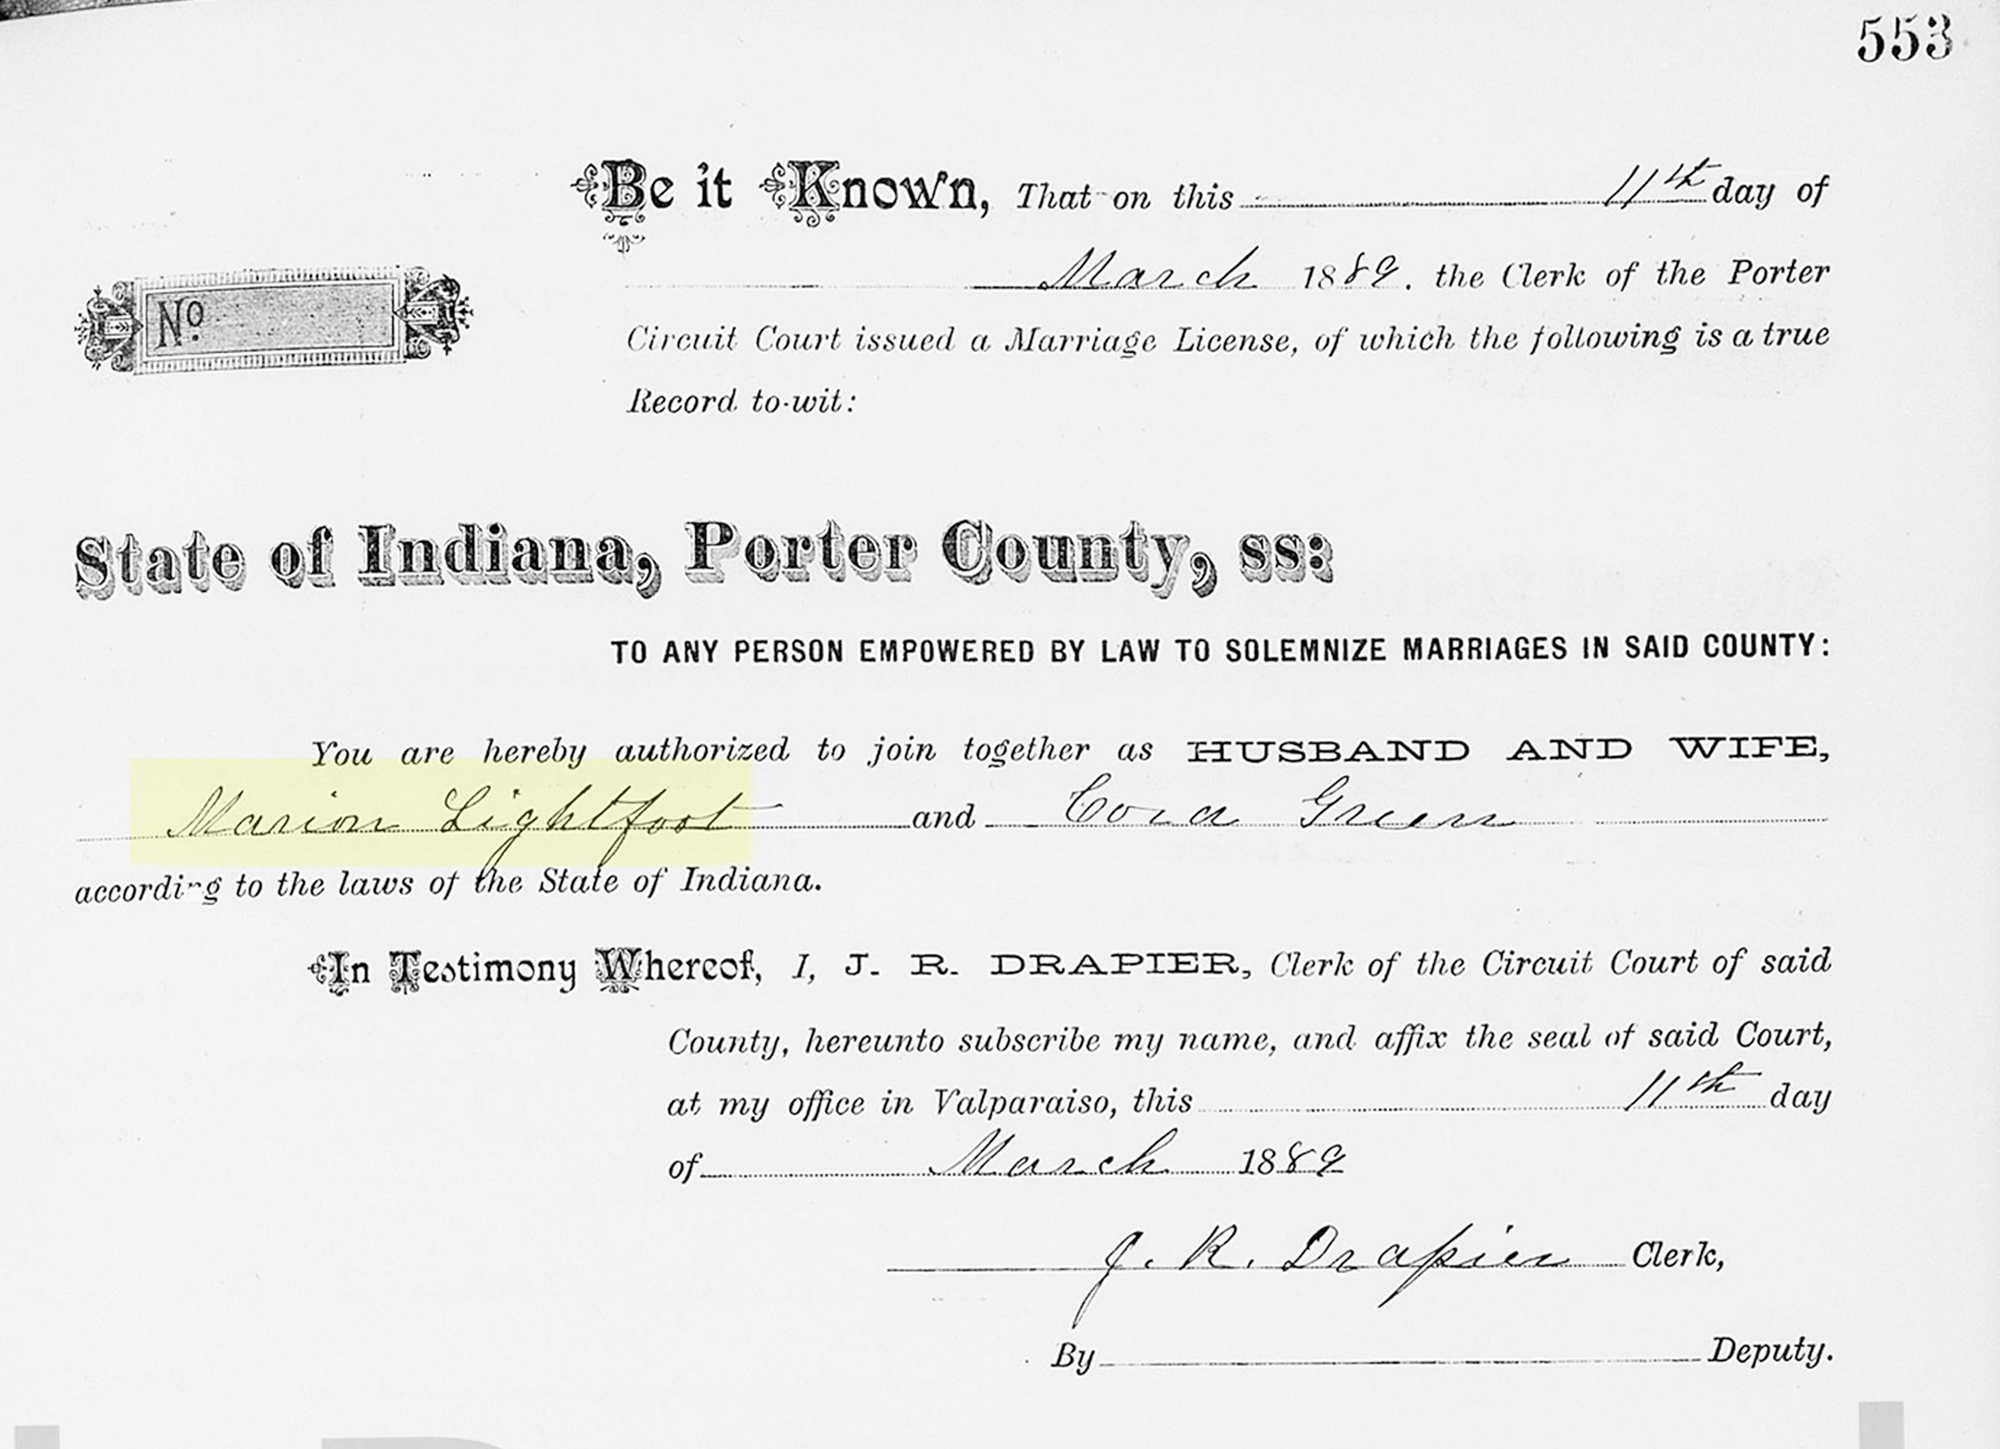 553
Be it Known, That on this 11th day of
March 1889. the Clerk of the Porter
No.
Circuit Court issued a Marriage License, of which the following is a true
Record to-wit:
State of Indiana, Porter County, ss:
TO ANY PERSON EMPOWERED BY LAW TO SOLEMNIZE MARRIAGES IN SAID COUNTY:
You are hereby authorized to join together as HUSBAND AND WIFE,
Marion Lightfoot and Cora Green
according to the laws of the State of Indiana.
In Testimony Whereof, I, J. R. DRAPIER, Clerk of the Circuit Court of said
County, hereunto subscribe my name, and affix the seal of said Court,
at my office in Valparaiso, this 11th day
of March 1889
J. R. Drapier Clerk,
By Deputy.